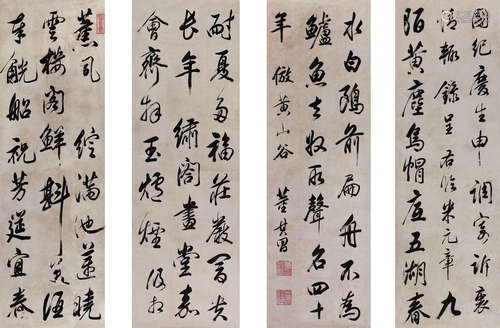 薰風 綻滿池蓮曉
雲樓閣鮮斟美酒
奉觥船祝芳筵宜
耐夏多福莊嚴富貴
長年 繡閣畫堂嘉
會齊拜玉爐煙
國紀慶生申 調寄訴衷
情輒錄呈 右臨米元章 九
陌黃塵烏帽底五湖春
水白鷗前扁舟不為
鱸魚去收取聲名四十
年 倣黃山谷 董其昌